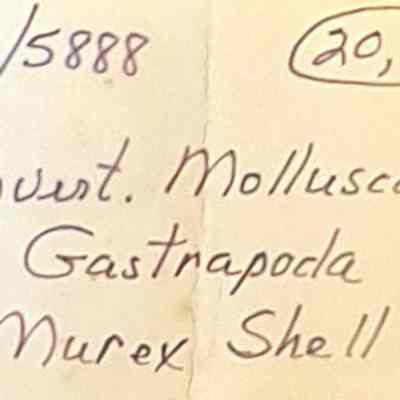 /5888 20,
vert. Mollusc
Gastrapoda
Murex Shell